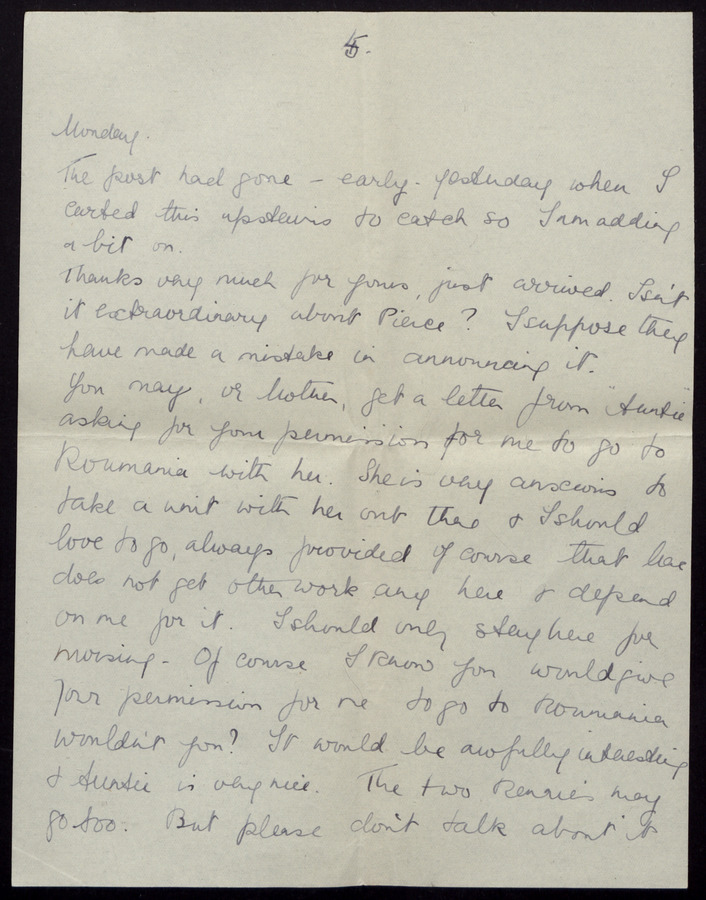 5.
Monday.
The post had gone - early - yesterday when I
carted this upstairs to catch so I am adding
a bit on.
Thanks very much for yours, just arrived. Isn't
it extraordinary about Pierce? I suppose they
have made a mistake in announcing it.
You may, or Mother, get a letter from "Auntie"
asking for your permission for me to go to
Roumania with her. She is very anxious to
take a unit with her out there & I should
love to go, always provided of course that
does not get other work any here & depend
on me for it. I should only stay here for
nursing - Of course I know you would give
your permission for me to go to Roumania
wouldn't you? It would be awfully interesting
& Auntie is very nice. The two Rennies may
go too. But please don't talk about it